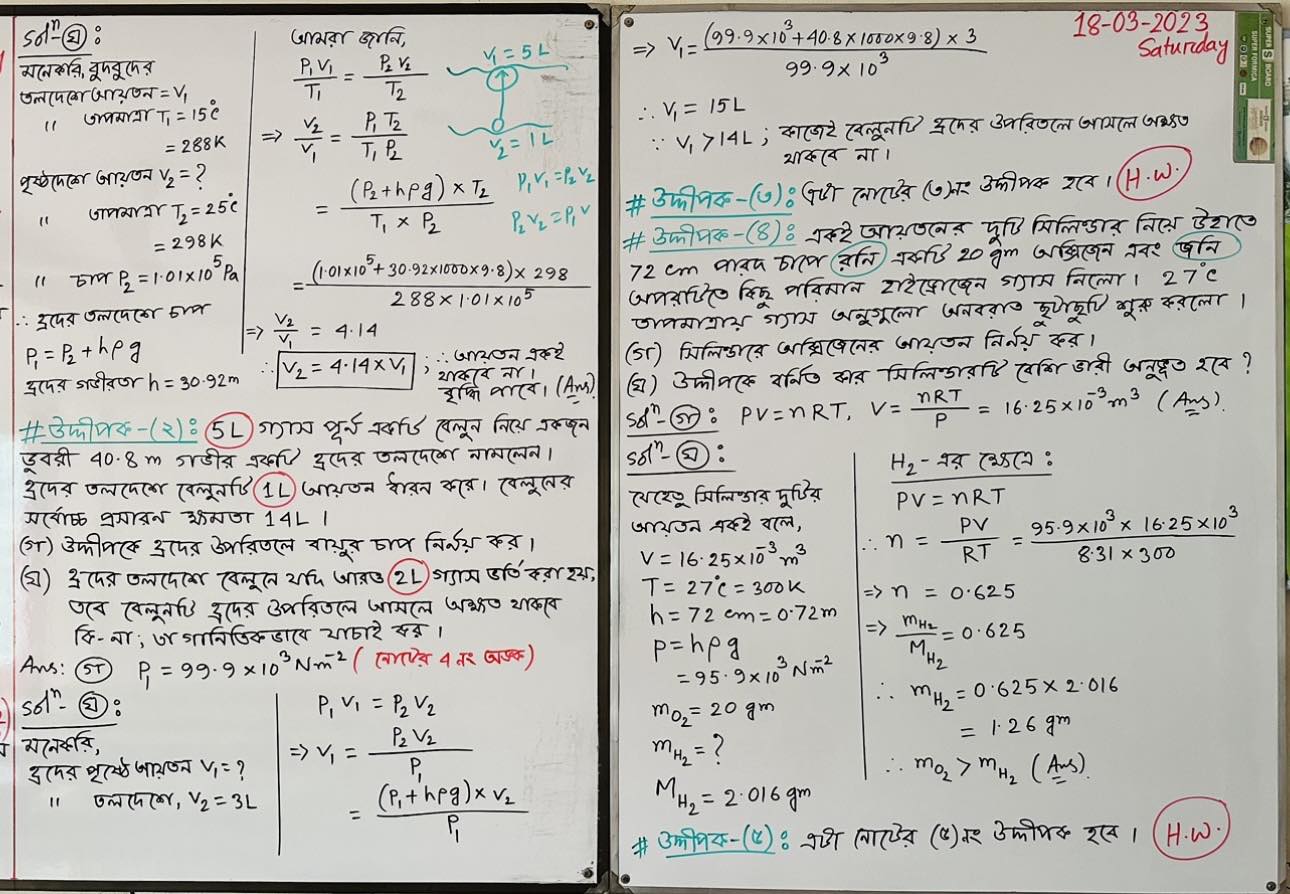 Solⁿ-(ঘ):
মনেকরি, বুদবুদের
তলদেশে আয়তন = V₁
" তাপমাত্রা T₁ = 15°c
= 288K
পৃষ্ঠদেশে আয়তন V₂ = ?
" তাপমাত্রা T₂ = 25°c
= 298K
" চাপ P₂ = 1.01×10⁵ Pa
∴ হ্রদের তলদেশে চাপ
P₁ = P₂ + hρg
হ্রদের গভীরতা h = 30.92m
আমরা জানি,
P₁V₁/T₁ = P₂V₂/T₂
=> V₂/V₁ = P₁T₂/T₁P₂
= (P₂+hρg) × T₂ / T₁ × P₂
= (1.01×10⁵ + 30.92×1000×9.8) × 298 / 288×1.01×10⁵
=> V₂/V₁ = 4.14
∴ V₂ = 4.14×V₁ ; ∴ আয়তন একই
থাকবে না।
বৃদ্ধি পাবে। (Ans)
V₁ = 5L
V₂ = 1L
P₁V₁ = P₂V₂
P₂V₂ = P₁V
# উদ্দীপক-(২): 5L গ্যাস পূর্ন একটি বেলুন নিয়ে একজন
ডুবরী 40.8 m গভীর একটি হ্রদের তলদেশে নামলেন।
হ্রদের তলদেশে বেলুনটি 1L আয়তন ধারন করে। বেলুনের
সর্বোচ্চ প্রসারন ক্ষমতা 14L।
(গ) উদ্দীপকে হ্রদের উপরিতলে বায়ুর চাপ নির্নয় কর।
(ঘ) হ্রদের তলদেশে বেলুনে যদি আরও 2L গ্যাস ভর্তি করা হয়,
তবে বেলুনটি হ্রদের উপরিতলে আসলে অক্ষত থাকবে
কি-না; তা গানিতিকভাবে যাচাই কর।
Ans: (গ) P₁ = 99.9×10³ Nm⁻² (নোটের 4 নং অংক)
Solⁿ-(ঘ):
মনেকরি,
হ্রদের পৃষ্ঠে আয়তন V₁ = ?
" তলদেশে, V₂ = 3L
P₁V₁ = P₂V₂
=> V₁ = P₂V₂/P₁
= (P₁+hρg)×V₂/P₁
18-03-2023
Saturday
=> V₁ = (99.9×10³ + 40.8×1000×9.8) × 3 / 99.9×10³
∴ V₁ = 15L
∵ V₁ > 14L ; কাজেই বেলুনটি হ্রদের উপরিতলে আসলে অক্ষত
থাকবে না।
# উদ্দীপক-(৩): এটা নোটের (৩)নং উদ্দীপক হবে। H.W.
# উদ্দীপক-(৪): একই আয়তনের দুটি সিলিন্ডার নিয়ে উহাতে
72 cm পারদ চাপে রনি একটি 20 gm অক্সিজেন এবং জনি
অপরটিতে কিছু পরিমান হাইড্রোজেন গ্যাস নিলো। 27°c
তাপমাত্রায় গ্যাস অনুগুলো অনবরত ছুটাছুটি শুরু করলো।
(গ) সিলিন্ডারে অক্সিজেনের আয়তন নির্নয় কর।
(ঘ) উদ্দীপকে বর্নিত কার সিলিন্ডারটি বেশি ভারী অনুভূত হবে?
Solⁿ-(গ): PV = nRT, V = nRT/P = 16.25×10⁻³ m³ (Ans).
Solⁿ-(ঘ):
যেহেতু সিলিন্ডার দুটির
আয়তন একই বলে,
V = 16.25×10⁻³ m³
T = 27°c = 300K
h = 72 cm = 0.72m
P = hρg
= 95.9×10³ Nm⁻²
mO₂ = 20 gm
mH₂ = ?
MH₂ = 2.016 gm
H₂-এর ক্ষেত্রে:
PV = nRT
∴ n = PV/RT = 95.9×10³ × 16.25×10³ / 8.31×300
=> n = 0.625
=> mH₂/MH₂ = 0.625
∴ mH₂ = 0.625×2.016
= 1.26 gm
∴ mO₂ > mH₂ (Ans).
# উদ্দীপক-(৫): এটা নোটের (৫)নং উদ্দীপক হবে। H.W.
SUPER S BOARD
SUPER FORMICA